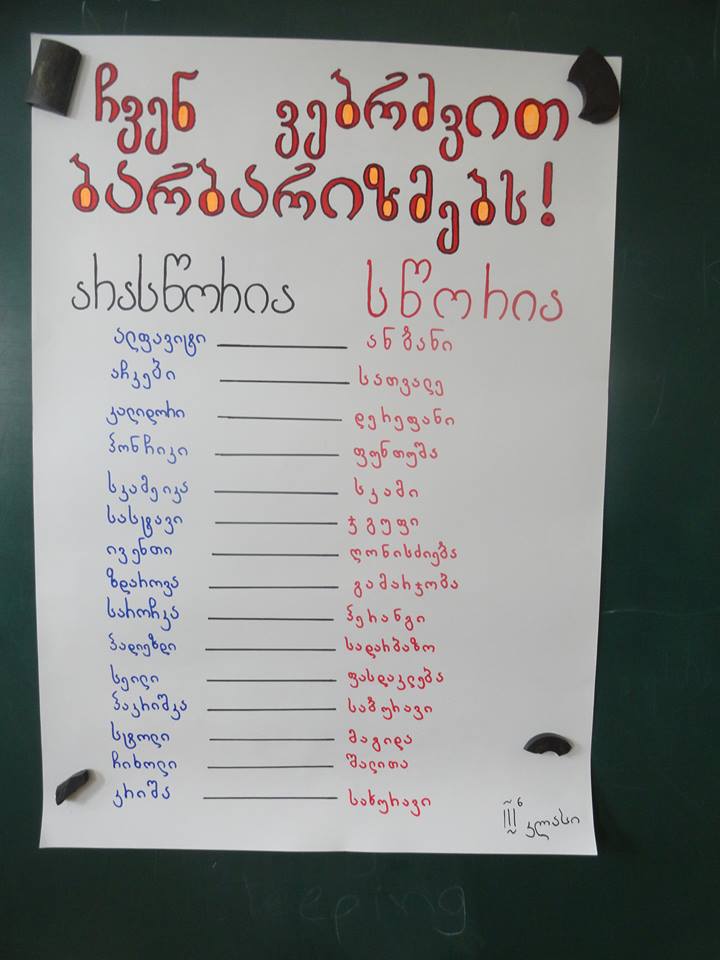 ჩვენ ვებრძვით
ბარბარიზმებს!
არასწორია სწორია
ალფავიტი ანბანი
აჩკები სათვალე
კალიდორი დერეფანი
პონჩიკი ფუნთუშა
სკამეიკა სკამი
სასტავი ჯგუფი
ივენთი ღონისძიება
ზდაროვა გამარჯობა
საროჩკა პერანგი
პადიეზდი სადარბაზო
სეილი ფასდაკლება
პაკრიშკა საბურავი
სტოლი მაგიდა
ჩიხოლი შალითა
კრიშა სახურავი
III ბ კლასი
eeping